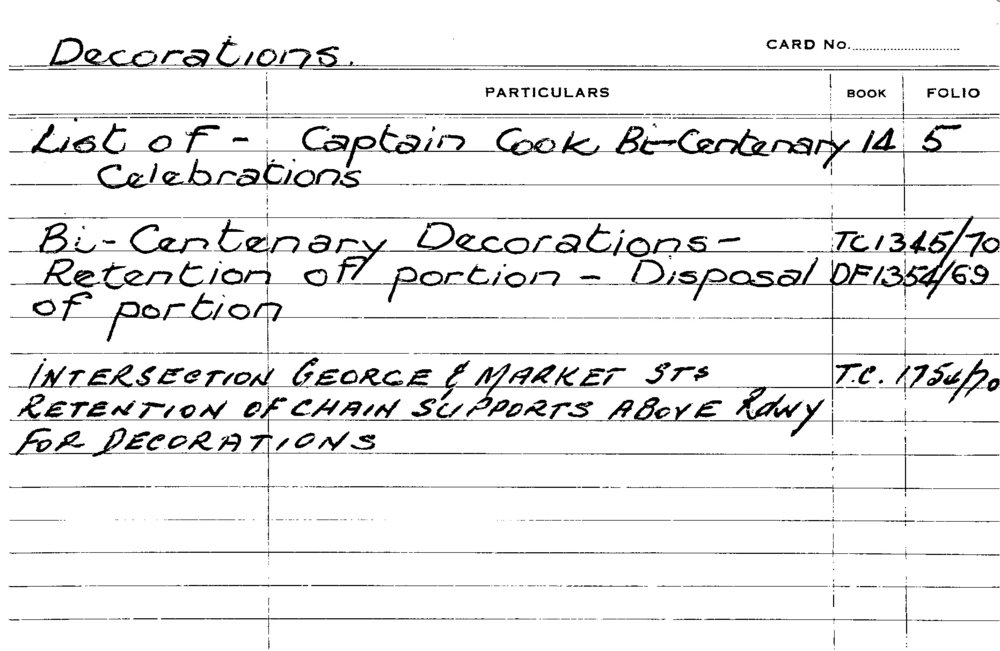 Decorations.
CARD No.
PARTICULARS BOOK FOLIO
List of - Captain Cook Bi-Centenary 14 5
Celebrations
Bi-Centenary Decorations- TC1345/70
Retention of portion - Disposal DF1354/69
of portion
INTERSECTION GEORGE & MARKET STS T.C. 1754/70
RETENTION OF CHAIN SUPPORTS ABOVE Rdwy
FOR DECORATIONS